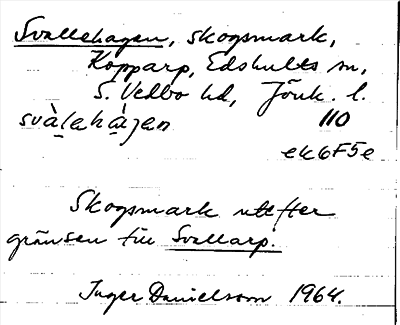 Svallehagen, skogsmark,
Kopparp, Edshults sn,
S. Vedbo hd, Jönk. l.
svàlahàgen 110
ek6F5e
Skogsmark utefter
gränsen till Svallarp.
Inger Danielsson 1964.